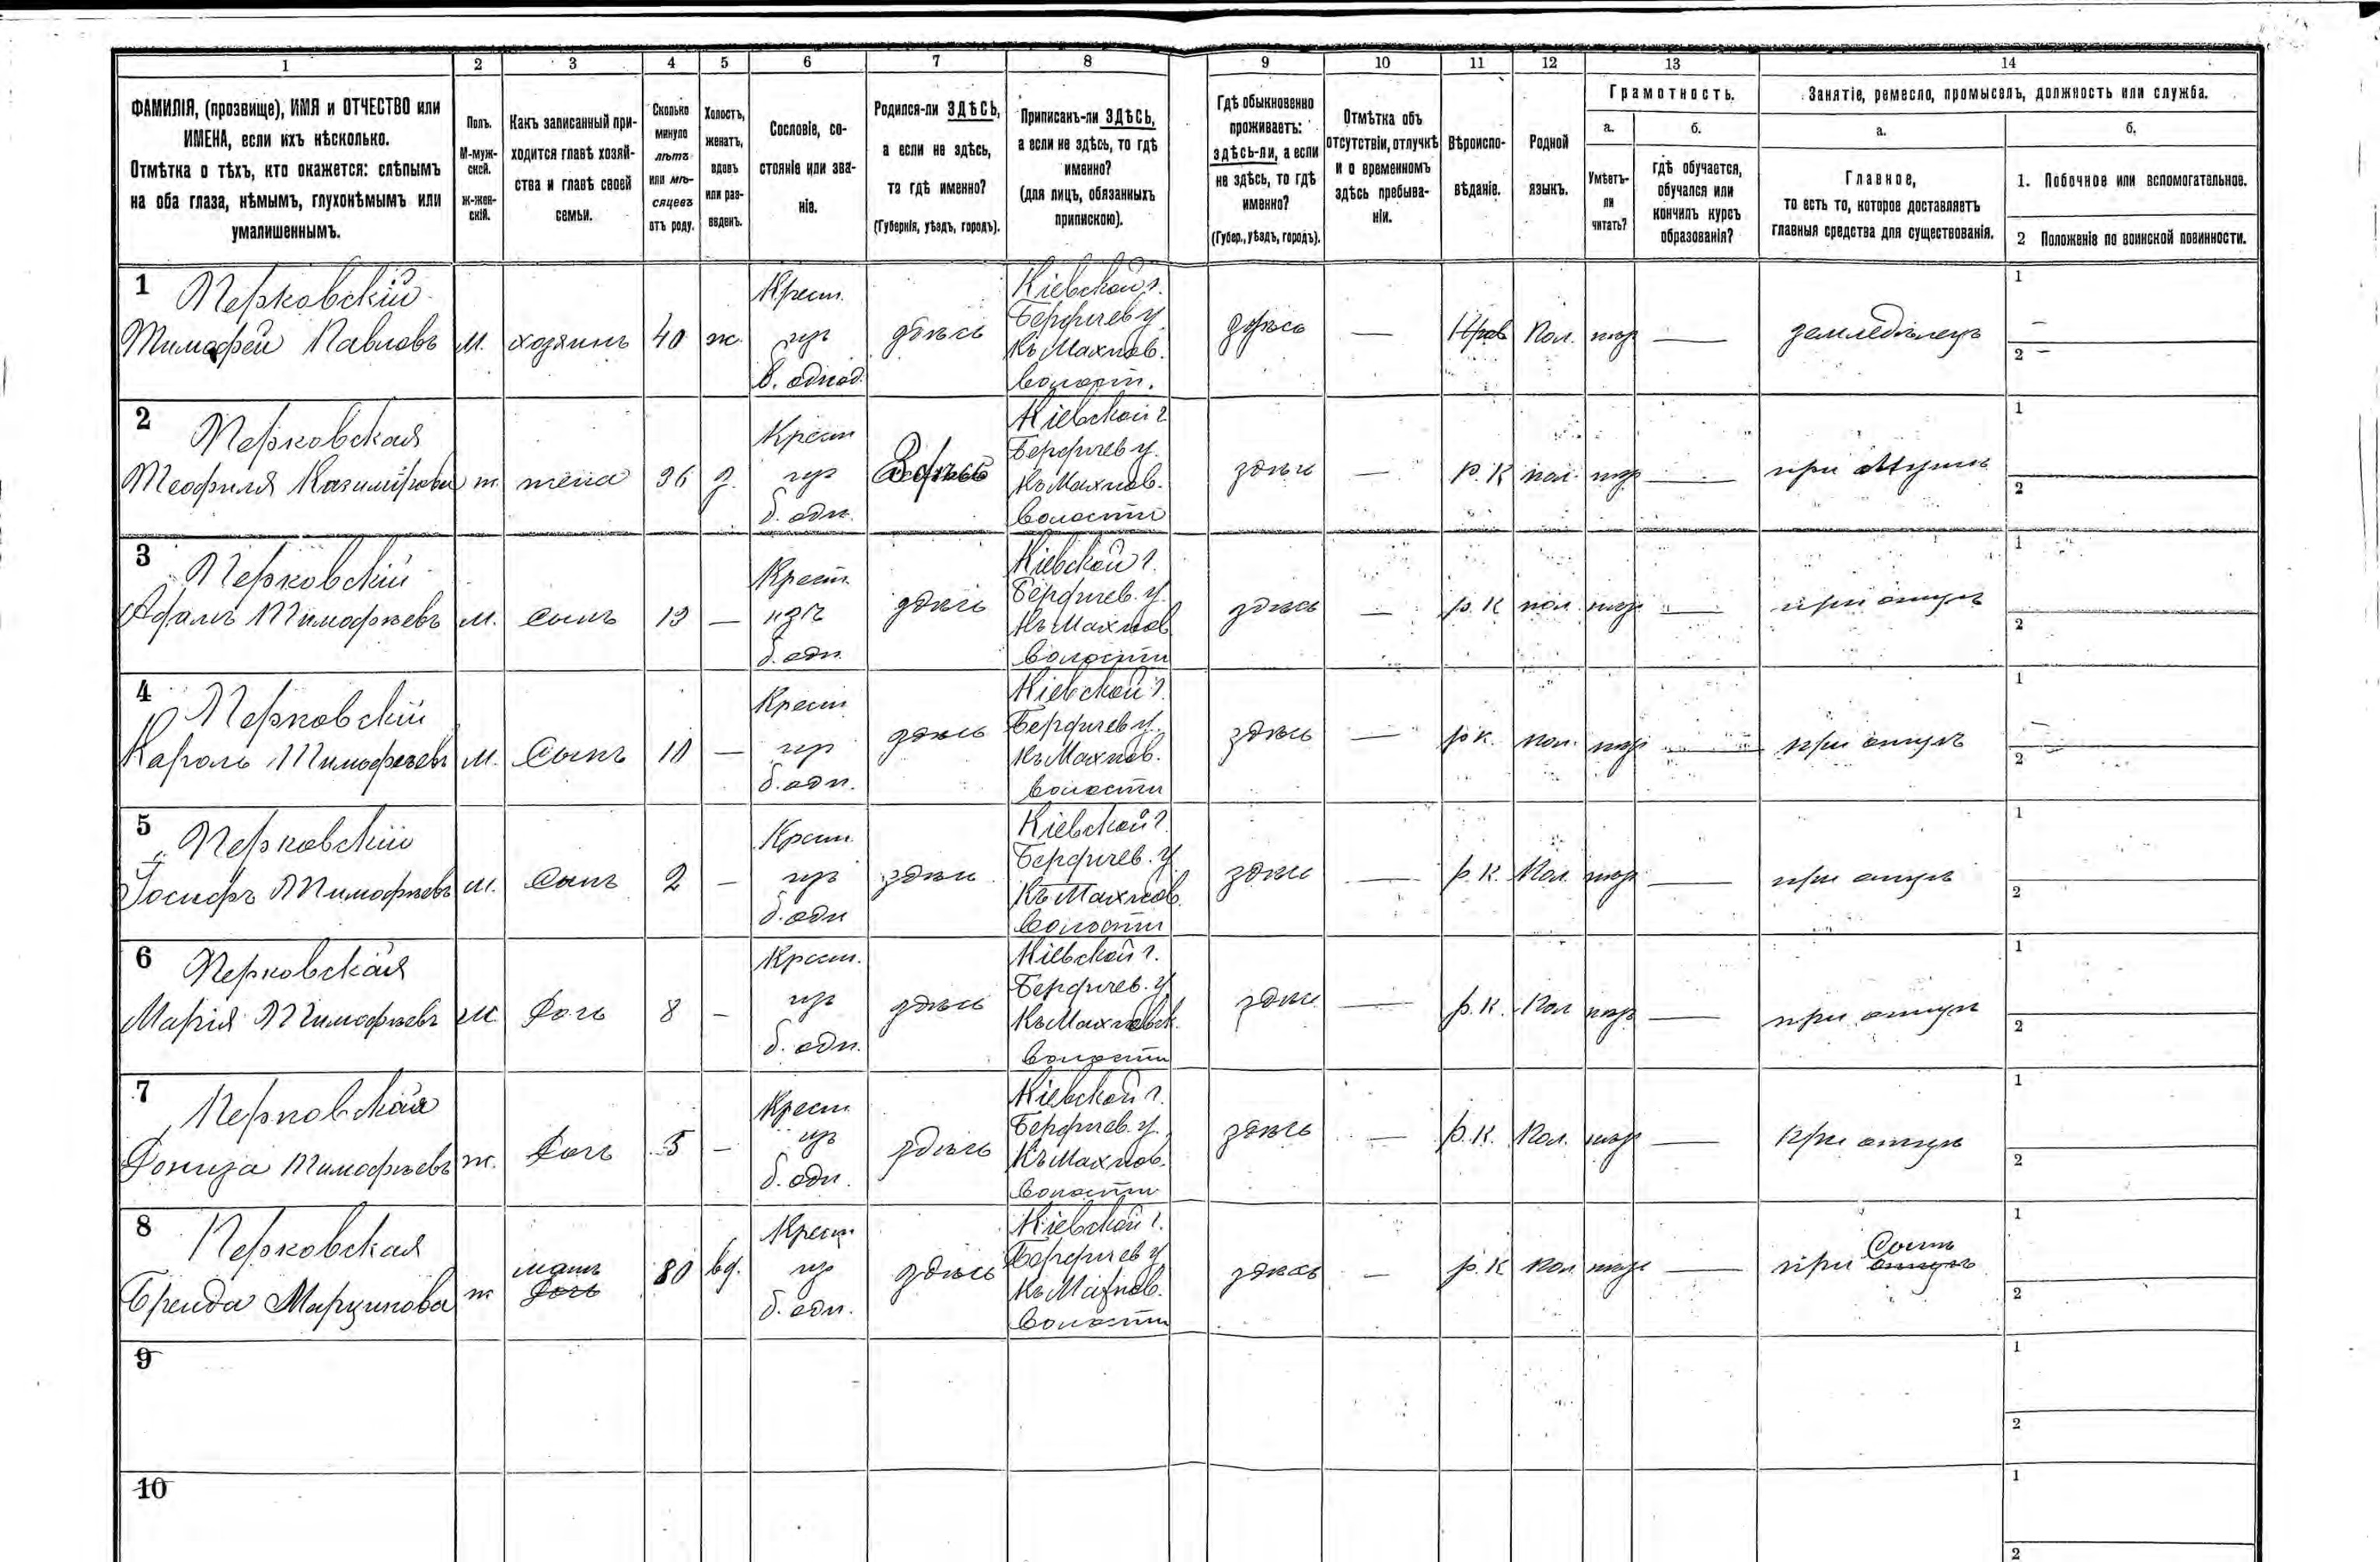 1 2 3 4 5 6 7 8 9 10 11 12 13 14
ФАМИЛІЯ, (прозвище), ИМЯ и ОТЧЕСТВО или
ИМЕНА, если ихъ нѣсколько.
Отмѣтка о тѣхъ, кто окажется: слѣпымъ
на оба глаза, нѣмымъ, глухонѣмымъ или
умалишеннымъ.
Полъ.
М-муж-
ской.
ж-жен-
скій.
Какъ записанный при-
ходится главѣ хозяй-
ства и главѣ своей
семьи.
Сколько
минуло
лѣтъ
или мѣ-
сяцевъ
отъ роду.
Холостъ,
женатъ,
вдовъ
или раз-
веденъ.
Сословіе, со-
стояніе или зва-
ніе.
Родился-ли ЗДѢСЬ,
а если не здѣсь,
то гдѣ именно?
(Губернія, уѣздъ, городъ).
Приписанъ-ли ЗДѢСЬ,
а если не здѣсь, то гдѣ
именно?
(для лицъ, обязанныхъ
припискою).
Гдѣ обыкновенно
проживаетъ:
здѣсь-ли, а если
не здѣсь, то гдѣ
именно?
(Губер., уѣздъ, городъ).
Отмѣтка объ
отсутствіи, отлучкѣ
и о временномъ
здѣсь пребыва-
ніи.
Вѣроиспо-
вѣданіе.
Родной
языкъ.
Грамотность.
а.
Умѣетъ-
ли
читать?
б.
гдѣ обучается,
обучался или
кончилъ курсъ
образованія?
Занятіе, ремесло, промыселъ, должность или служба.
а.
Главное,
то есть то, которое доставляетъ
главныя средства для существованія.
б.
1. Побочное или вспомогательное.
2 Положеніе по воинской повинности.
1 Перковскій
Тимофей Павловъ
М.
хозяинъ
40
ж.
Крест.
изъ
б. однод.
здѣсь
Кіевской г.
Бердичев у.
Къ Махнов.
волост.
здѣсь
—
Прав
Пол.
—
земледѣлецъ
1 —
2 —
2 Перковская
Теофиля Казимірова
ж.
жена
36
з.
Крест
изъ
б. одн.
Здѣсь
Кіевской г
Бердичев у.
Къ Махнов.
волости
здѣсь
—
р. К
пол.
—
при мужѣ
1
2
3 Перковскій
Адамъ Тимофѣевъ
М.
сынъ
13
—
Крест.
изъ
б. одн.
здѣсь
Кіевской г.
Бердичев. у.
Къ Махнов
волости
здѣсь
—
р. К
пол.
—
при отцѣ
1
2
4 Перковскій
Кароль Тимофѣевъ
М.
Сынъ
10
—
Крест
изъ
б. одн.
здѣсь
Кіевской г.
Бердичев у.
Къ Махнов.
волости
здѣсь
—
р к.
пол.
—
при отцѣ
1
2
5 Перковскій
Іосифъ Тимофѣевъ
М.
Сынъ
2
—
Крест.
изъ
б. одн
здѣсь
Кіевской г.
Бердичев. у
Къ Махнов.
волости
здѣсь
—
р. К.
Пол.
—
при отцѣ
1
2
6 Перковская
Марія Тимофѣевъ
Дочь
8
—
Крест.
изъ
б. одн.
здѣсь
Кіевской г.
Бердичев. у
Къ Махновск.
волости
здѣсь
—
р. К.
Пол
—
при отцѣ
1
2
7 Перковская
Тимофѣевъ
ж.
Дочь
5
—
Крест
изъ
б. одн.
здѣсь
Кіевской г.
Бердичев. у.
Къ Махнов.
волости
здѣсь
—
р. К.
Пол.
—
при отцѣ
1
2
8 Перковская
Марцинова
ж
мать
Дочь
80
вд.
Крест
изъ
б. одн.
здѣсь
Кіевской г.
Бердичев у
Къ Махнов.
волости
здѣсь
—
р. К
пол
—
Сынѣ
при отцѣ
1
2
9
1
2
10
1
2